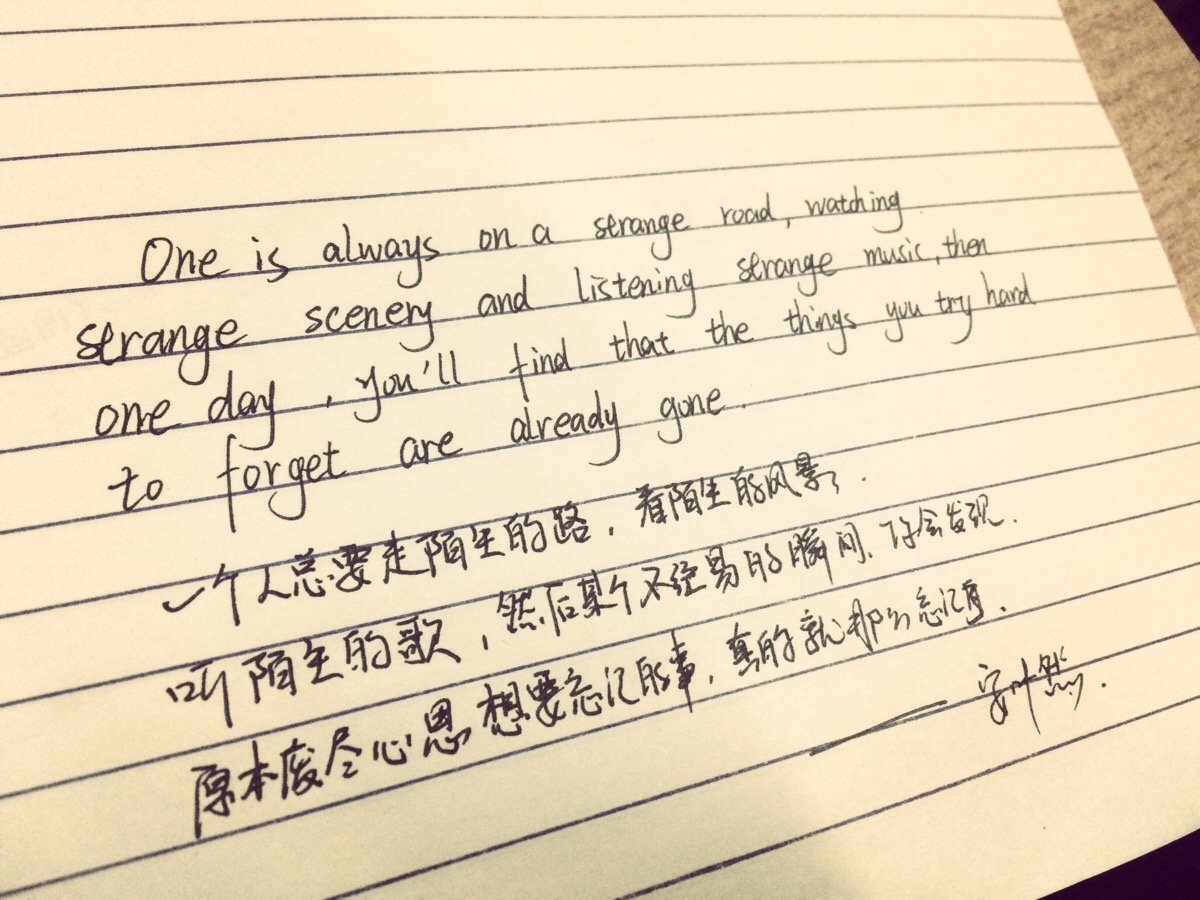 One is always on a strange road, watching
strange scenery and listening strange music, then
one day, you'll find that the things you try hard
to forget are already gone.
一个人总要走陌生的路，看陌生的风景.
听陌生的歌，然后某个不经易的瞬间，你会发现.
原本废尽心思想要忘记的事，真的就那么忘记了.
—— 安叶然.